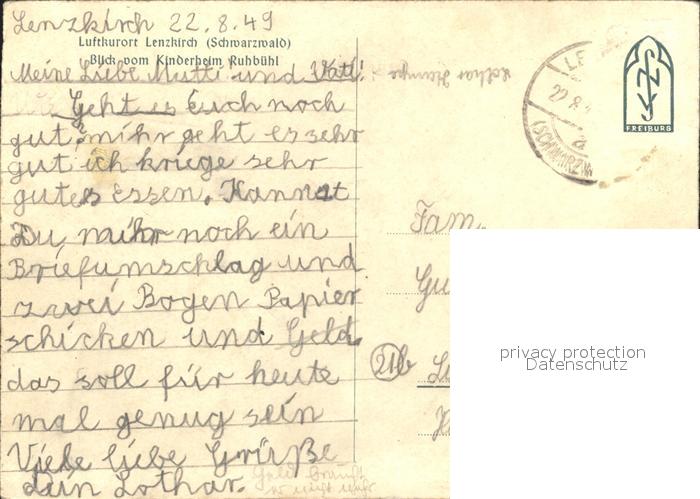 Lenzkirch 22.8.49
Luftkurort Lenzkirch (Schwarzwald)
Blick vom Kinderheim Ruhbühl
Meine Liebe Mutti und Vati!
Geht es Euch noch
gut, mihr geht es sehr
gut ich kriege sehr
gutes Essen. Kannst
Du mihr noch ein
Briefumschlag und
zwei Bogen Papier
schicken und Geld
das soll für heute
mal genug sein
Viele liebe Grüße
Dein Lothar.
Geld braucht
er nicht mehr
Lothar
LE
22.8.4
a
(SCHWARZW
FREIBURG
Fam.
Gu
21b
privacy protection
Datenschutz